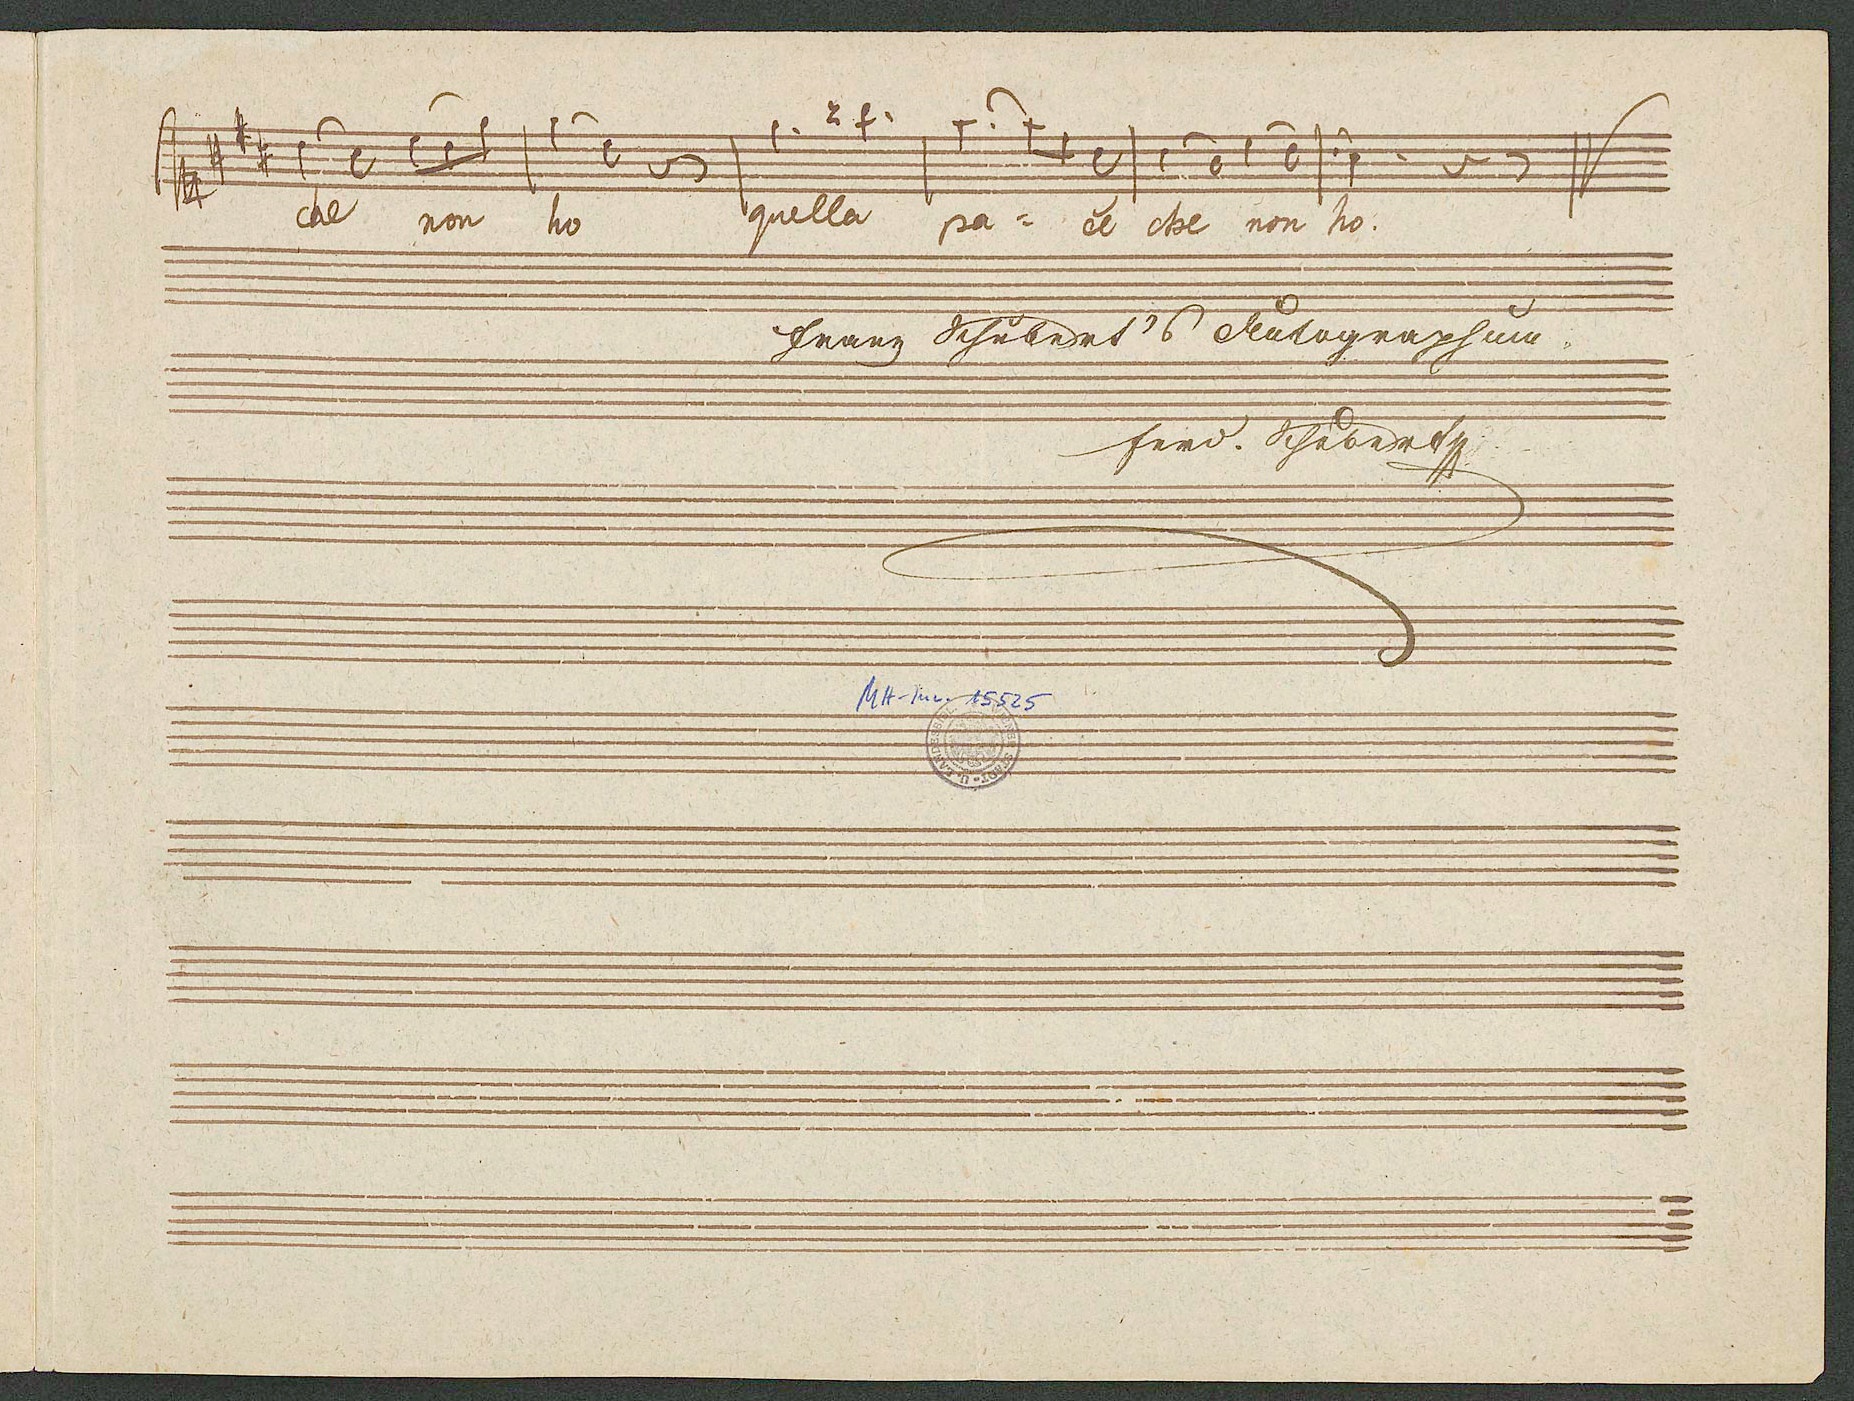 che non ho quella pa = ce che non ho.
Franz Schubert's Autographum.
Ferd. Schubert
MH-Inv. 15525